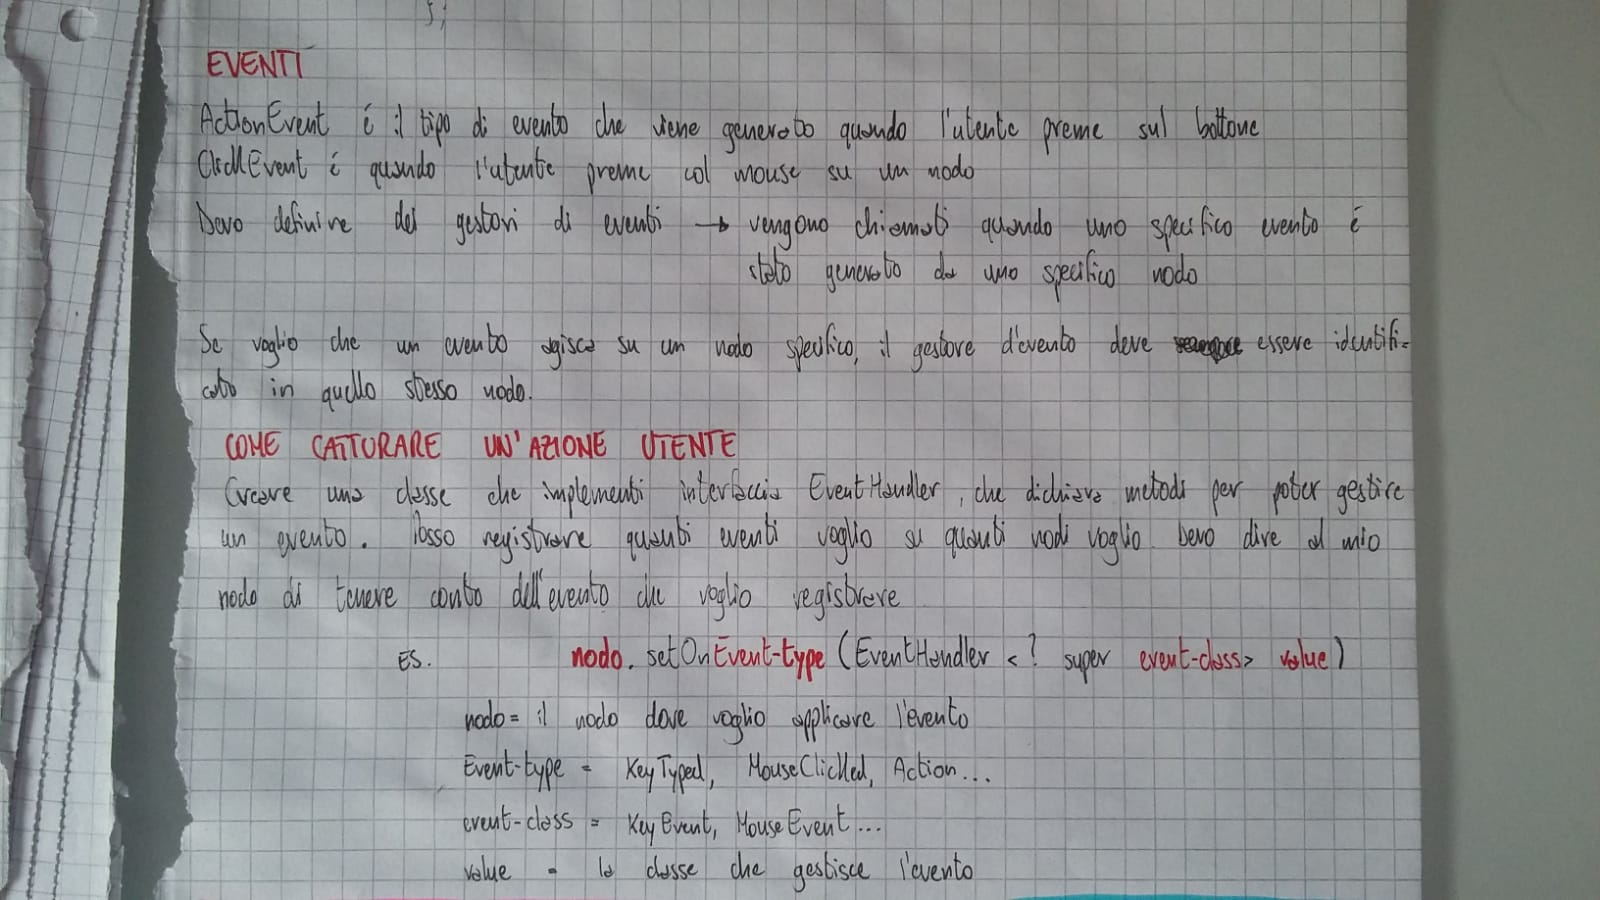 };
EVENTI
ActionEvent é il tipo di evento che viene generato quando l'utente preme sul bottone
ClickEvent é quando l'utente preme col mouse su un nodo
Devo definire dei gestori di eventi → vengono chiamati quando uno specifico evento é
stato generato da uno specifico nodo
Se voglio che un evento agisca su un nodo specifico, il gestore d'evento deve essere identifi-
cato in quello stesso nodo.
COME CATTURARE UN'AZIONE UTENTE
Creare una classe che implementi interfaccia EventHandler, che dichiara metodi per poter gestire
un evento. Posso registrare quanti eventi voglio su quanti nodi voglio. Devo dire al mio
nodo di tenere conto dell'evento che voglio registrare
ES. nodo.setOnEvent-type (EventHandler <? super event-class> value)
nodo = il nodo dove voglio applicare l'evento
Event-type = KeyTyped, MouseClicked, Action...
event-class = KeyEvent, MouseEvent...
value = la classe che gestisce l'evento